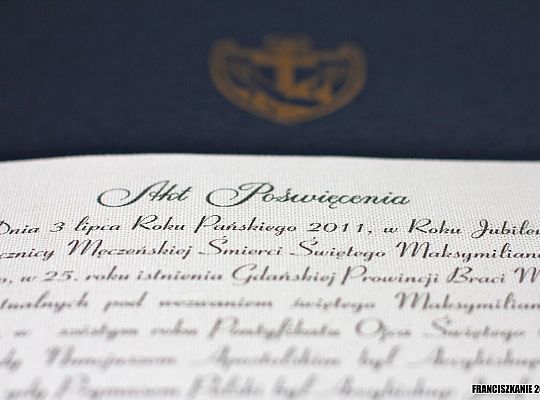 Akt Poświęcenia
Dnia 3 lipca Roku Pańskiego 2011, w Roku Jubileu
cznicy Męczeńskiej Śmierci Świętego Maksymiliana
, w 25. roku istnienia Gdańskiej Prowincji Braci M
tualnych pod wezwaniem świętego Maksymilian
w szóstym roku Pontyfikatu Ojca Świętego
gdy Prymasem Polski był Arcybiskup
FRANCISZKANIE 2